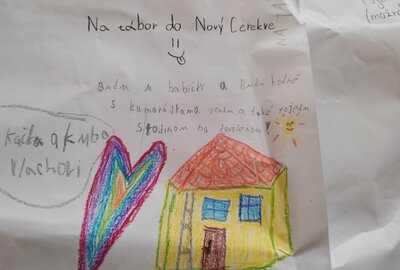 Na tábor do Nový Cerekve
=)
Budu u babički a Budu hodně
s kamarádkama venku a také pojedu
s rodinou na dovolenou!
Kačka a Kuba
Vlachovi
NA TÁ
(možná